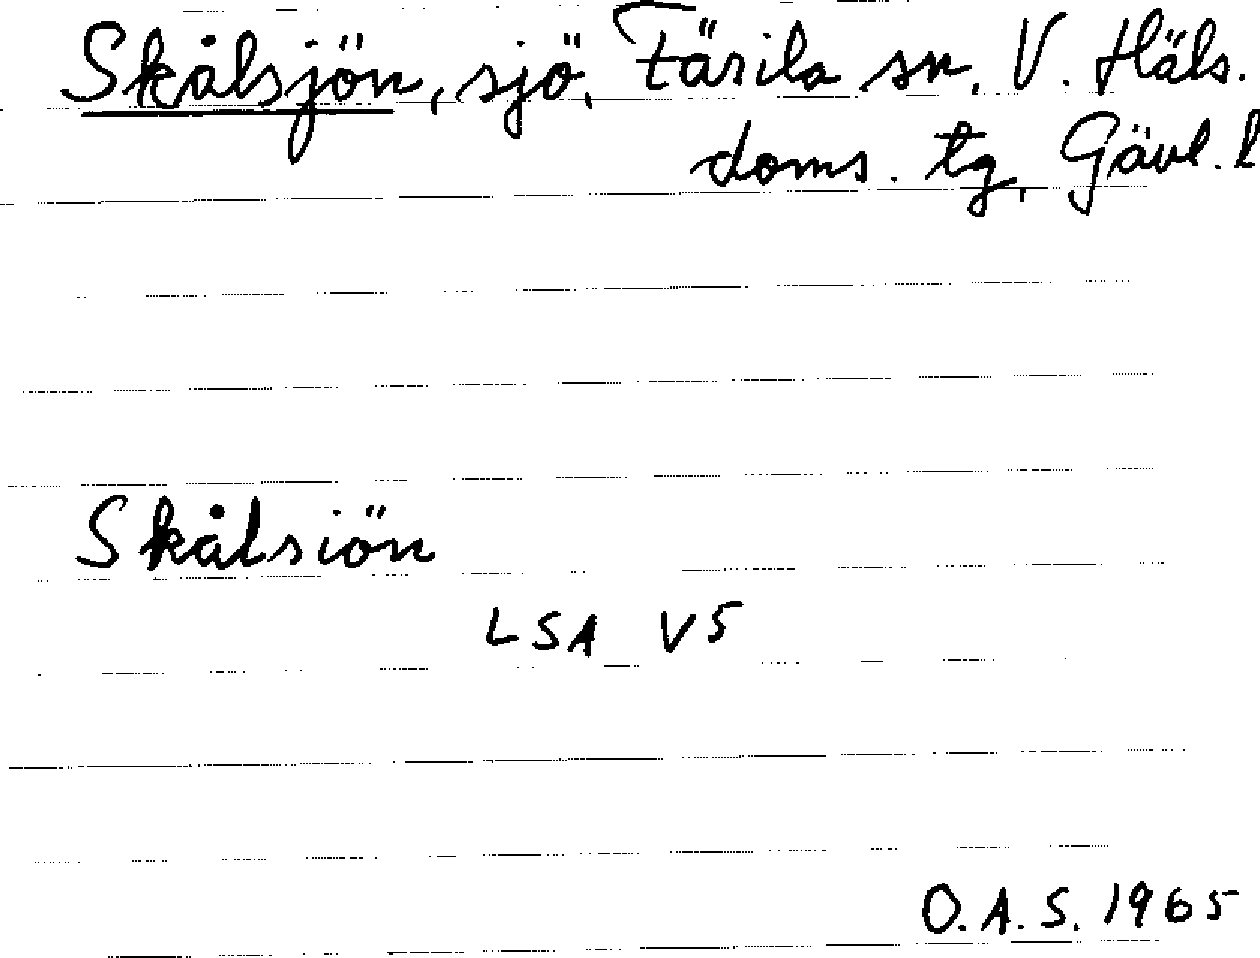 Skålsjön, sjö, Färila sn, V. Häls.
doms. tg, Gävl. l
Skålsiön
LSA V5
O.A.S. 1965